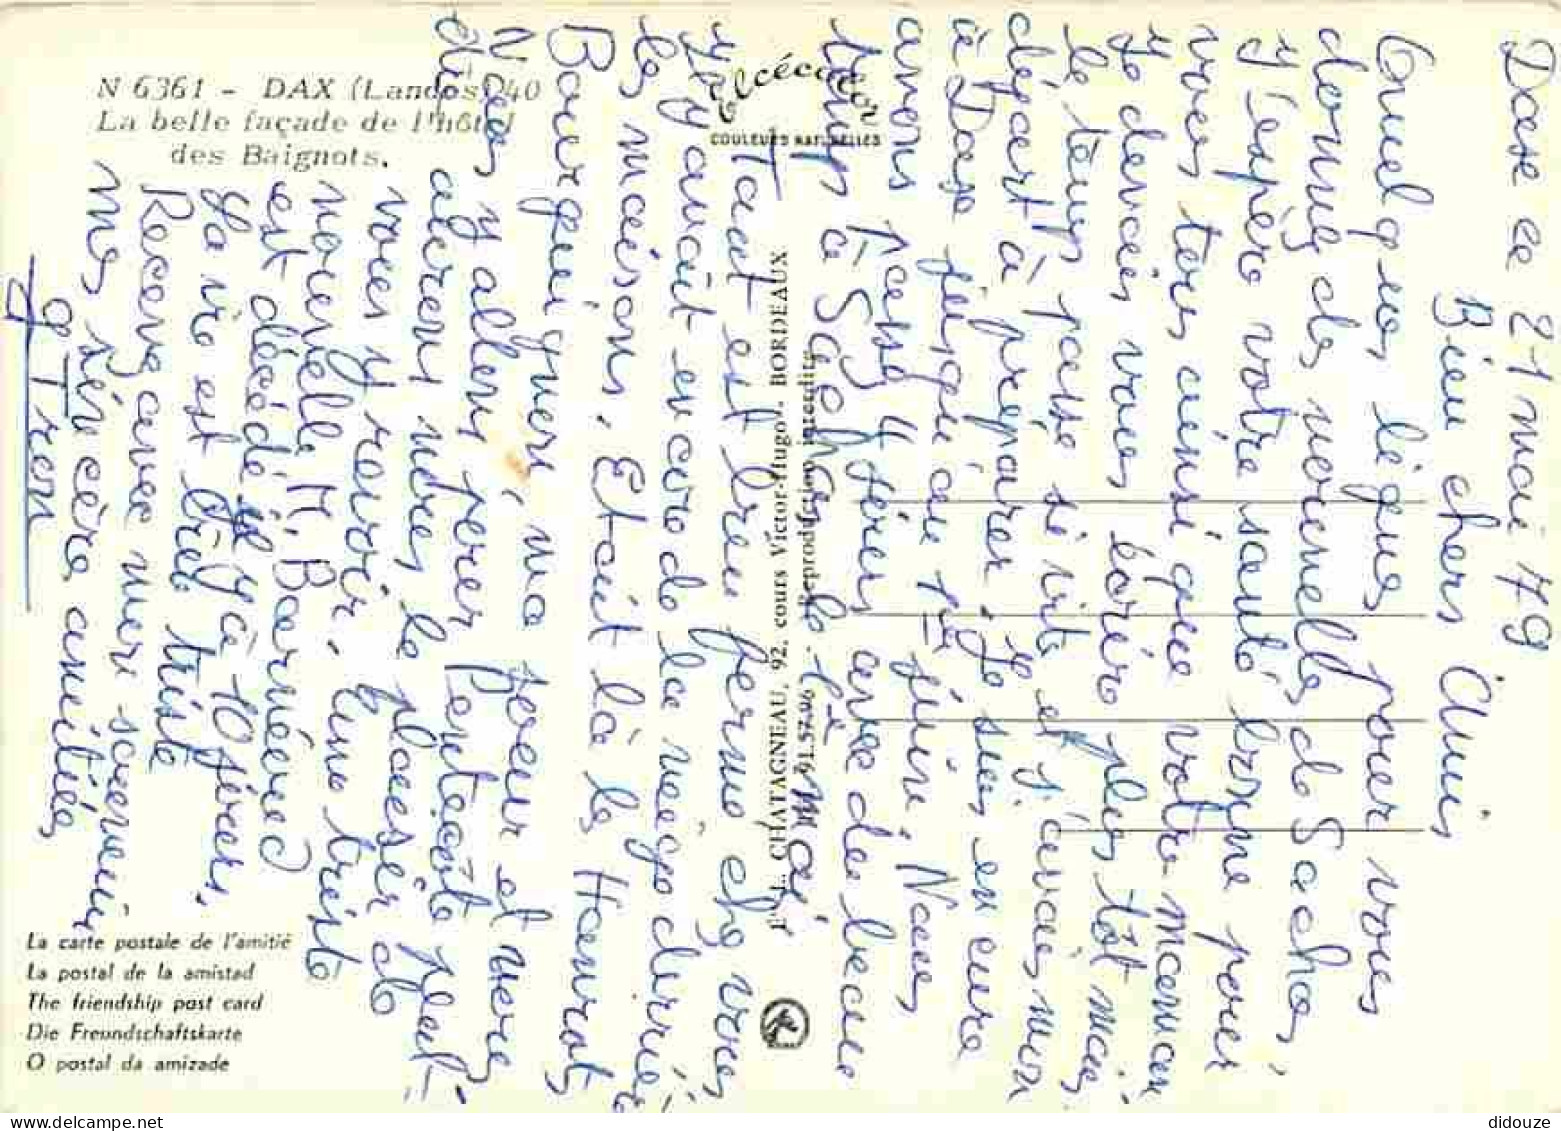 N 6361 - DAX (Landes) 40
La belle façade de l'hôtel
des Baignots.
COULEURS NATURELLES
E. L. CHATAGNEAU, 92, cours Victor-Hugo, BORDEAUX
Reproduction interdite 91.57.96
La carte postale de l'amitié
La postal de la amistad
The friendship post card
Die Freundschaftskarte
O postal da amizade
Daxe ce 21 mai 79
Bien chers Amis
Quelques lignes pour vous
donner des nouvelles de Sachas,
J'espère votre santé bonne pour
vous tous ainsi que votre maman
Je devais vous écrire plus tôt mais
le temps passe si vite et j'avais mon
départ à préparer. Je suis en cure
à Daxe jusqu'au 1er juin, Nous
avons passé 4 jours avec de beau
temps à Sachas le 1er mai
Tout est bien fermé chez vous
Il y avait encore de la neige derrière
les maisons. Etait là les Hourots
Bourguignon, ma soeur et nous
Nous y allons pour Pentecôte peut-
être aurons nous le plaisir de
vous y revoir. Une triste
nouvelle M. Bernéoud
est décédé il y a 10 jours,
La vie est bien triste
Recevez avec mon souvenir
mes sincères amitiés
G Tron